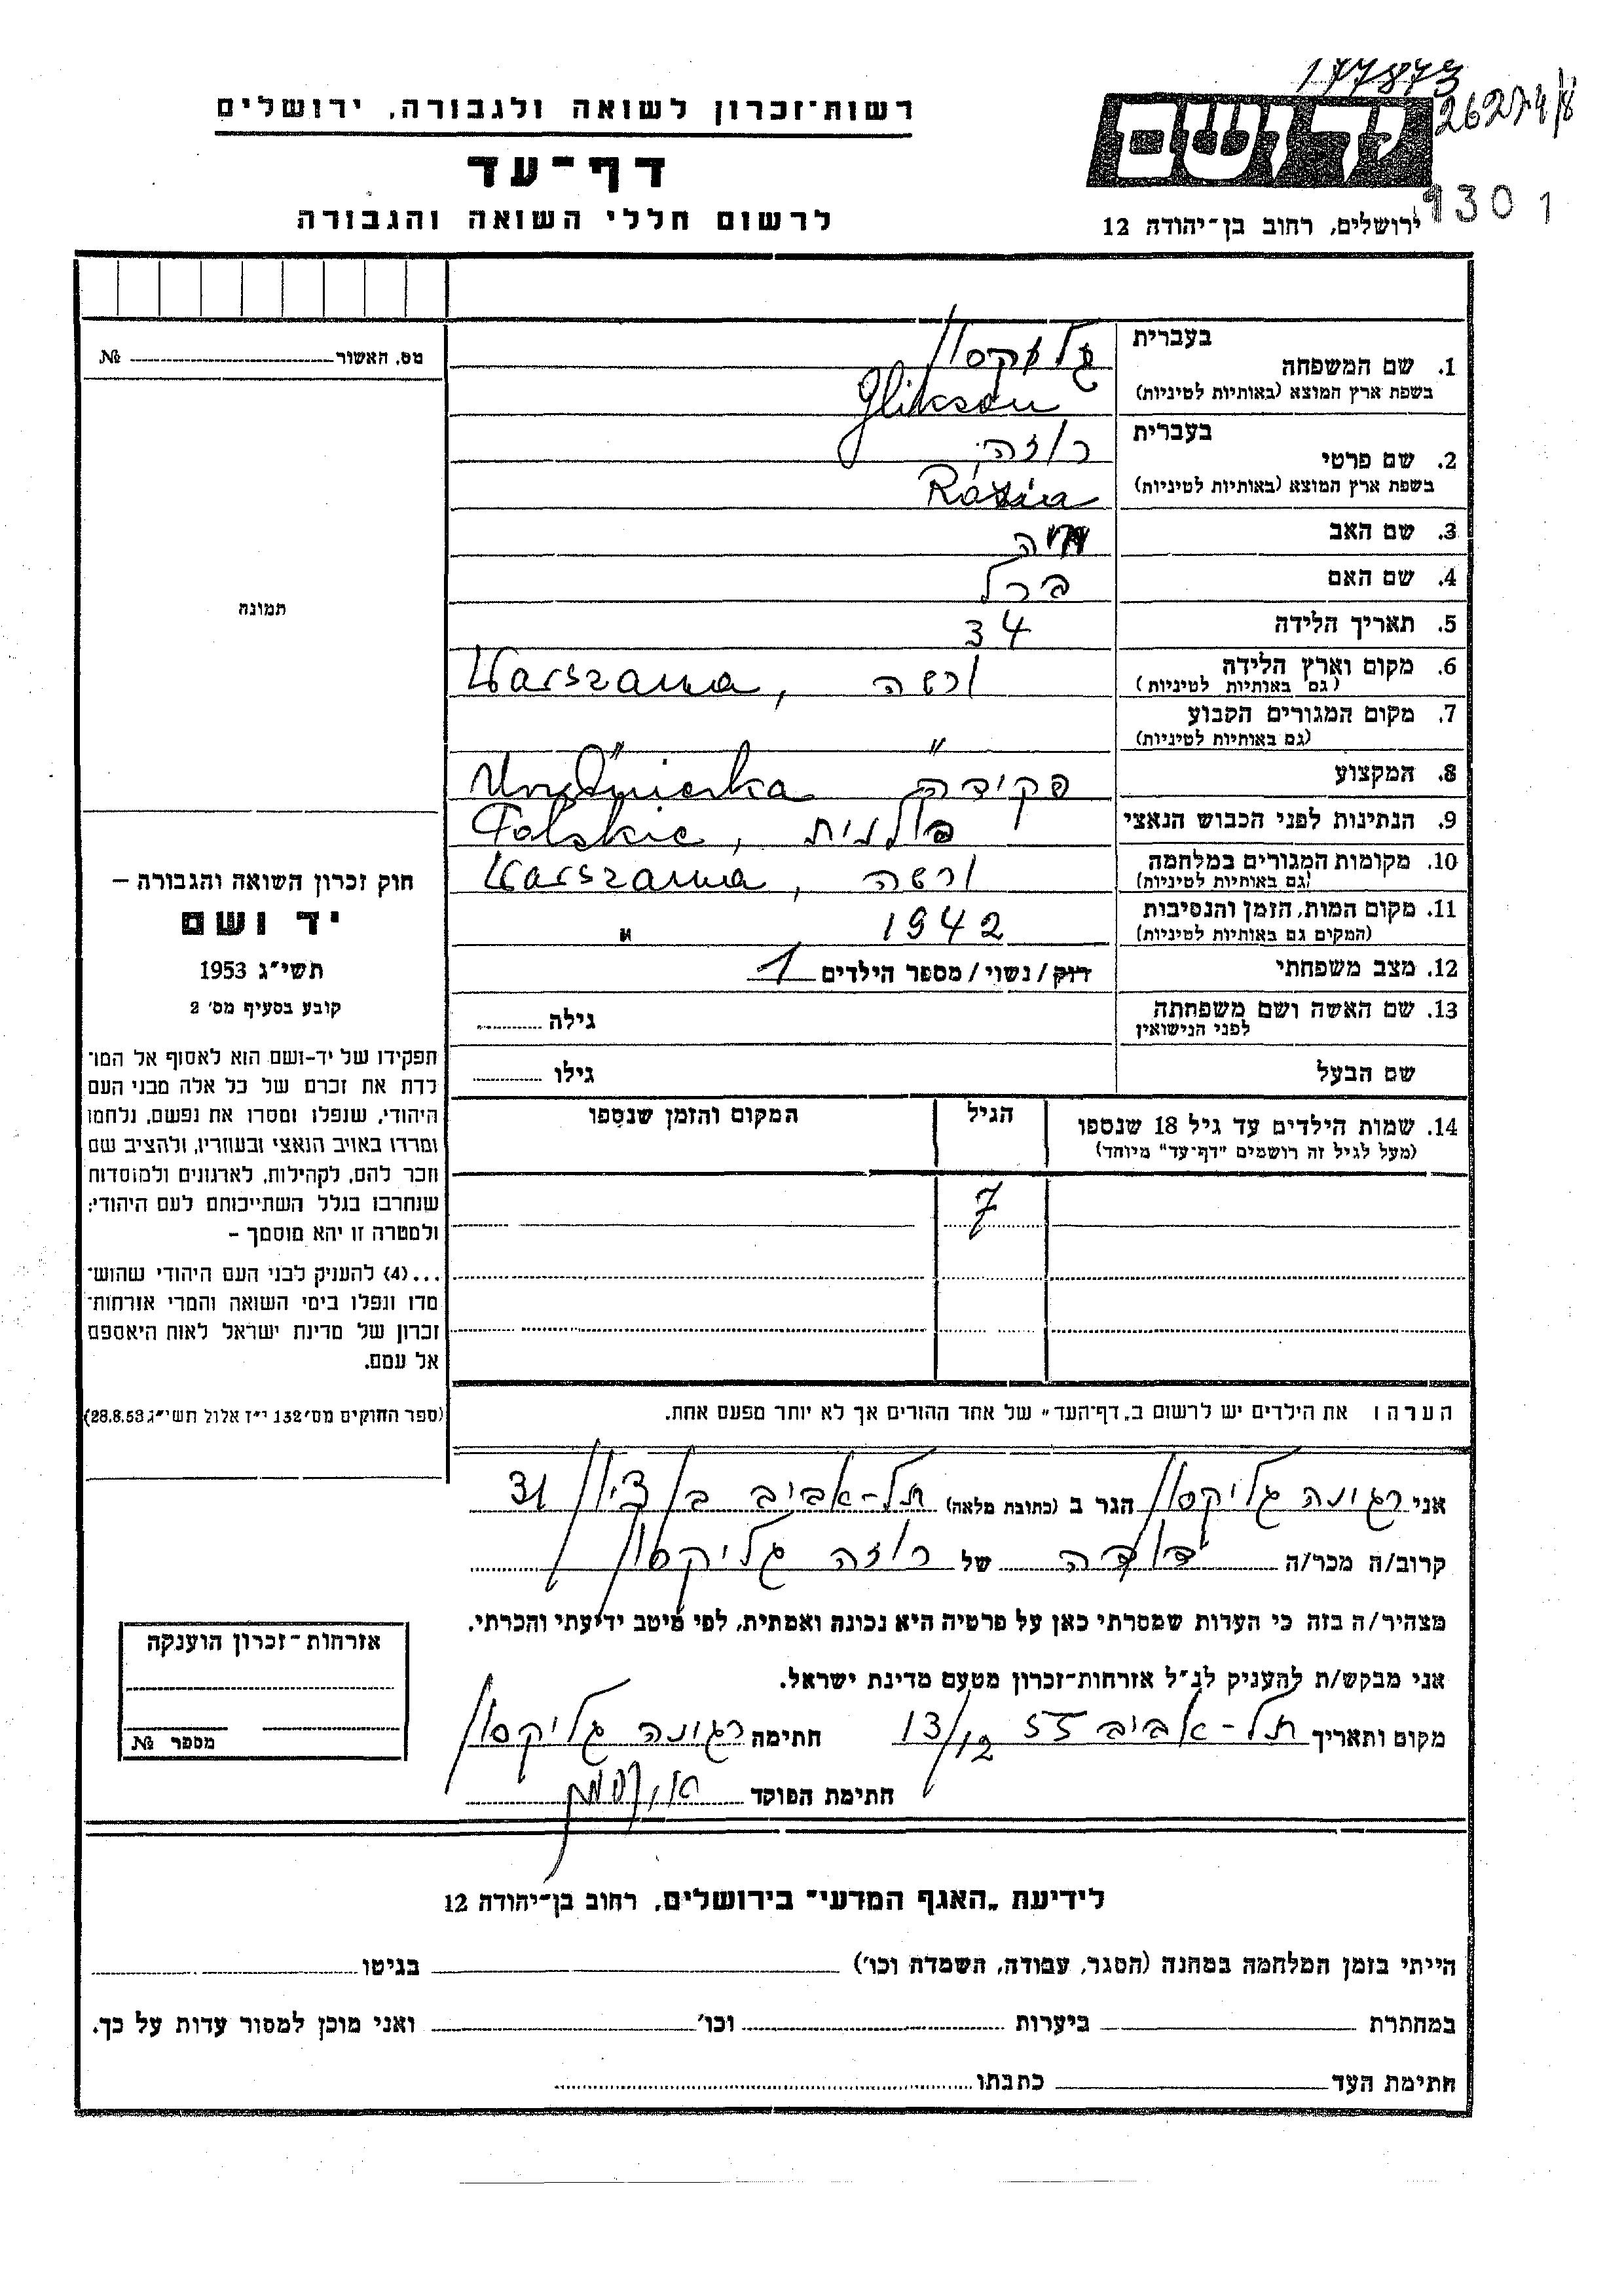 177873
26274/8
רשות־זכרון לשואה ולגבורה, ירושלים
יד ושם
דף־עד
9301
לרשום חללי השואה והגבורה
ירושלים, רחוב בן־יהודה 12
מס. האשור № 
1. שם המשפחה
בעברית גליקסון
בשפת ארץ המוצא (באותיות לטיניות) Glikson
2. שם פרטי
בעברית רוזה
בשפת ארץ המוצא (באותיות לטיניות) Rózia
3. שם האב
4. שם האם פרל
5. תאריך הלידה 34
6. מקום וארץ הלידה ורשה, Warszawa
(גם באותיות לטיניות)
7. מקום המגורים הקבוע " "
(גם באותיות לטיניות)
8. המקצוע פקידה
9. הנתינות לפני הכבוש הנאצי פולנית, Polskie
10. מקומות המגורים במלחמה ורשה, Warszawa
(גם באותיות לטיניות)
11. מקום המות, הזמן והנסיבות 1942 "
(המקום גם באותיות לטיניות)
12. מצב משפחתי רוק/נשוי/מספר הילדים 1
13. שם האשה ושם משפחתה לפני הנישואין גילה
שם הבעל גילו
14. שמות הילדים עד גיל 18 שנספו הגיל המקום והזמן שנספו
(מעל לגיל זה רושמים "דף־עד" מיוחד)
7
תמונה
חוק זכרון השואה והגבורה –
יד ושם
תשי"ג 1953
קובע בסעיף מס' 2
תפקידו של יד-ושם הוא לאסוף אל המו־
לדת את זכרם של כל אלה מבני העם
היהודי, שנפלו ומסרו את נפשם, נלחמו
ומרדו באויב הנאצי ובעוזריו, ולהציב שם
וזכר להם, לקהילות, לארגונים ולמוסדות
שנחרבו בגלל השתייכותם לעם היהודי;
ולמטרה זו יהא מוסמך –
...(4) להעניק לבני העם היהודי שהוש־
מדו ונפלו בימי השואה והמרי אזרחות־
זכרון של מדינת ישראל לאות היאספם
אל עמם.
(ספר החוקים מס' 132 י"ז אלול תשי"ג 28.8.53)
הערה: את הילדים יש לרשום ב„דף־העד" של אחד ההורים אך לא יותר מפעם אחת.
אני רגינה גליקסון הגר ב (כתובת מלאה) תל-אביב בן ציון 31
קרוב/ה מכר/ה דודה של רוזה גליקסון
מצהיר/ה בזה כי העדות שמסרתי כאן על פרטיה היא נכונה ואמתית, לפי מיטב ידיעתי והכרתי.
אני מבקש/ת להעניק לנ"ל אזרחות־זכרון מטעם מדינת ישראל.
מקום ותאריך תל-אביב 13/12 55 חתימה רגינה גליקסון
חתימת הפוקד
אזרחות־זכרון הוענקה
מספר №
לידיעת „האגף המדעי" בירושלים, רחוב בן־יהודה 12
הייתי בזמן המלחמה במחנה (הסגר, עבודה, השמדה וכו') בגיטו
במחתרת ביערות וכו' ואני מוכן למסור עדות על כך.
חתימת העד כתבתו